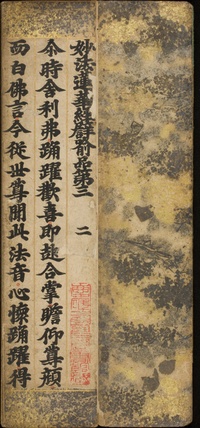 妙法蓮華經譬喻品第三 二
尒時舍利弗踊躍歡喜即起合掌瞻仰尊顏
而白佛言今從世尊聞此法音心懷踊躍得